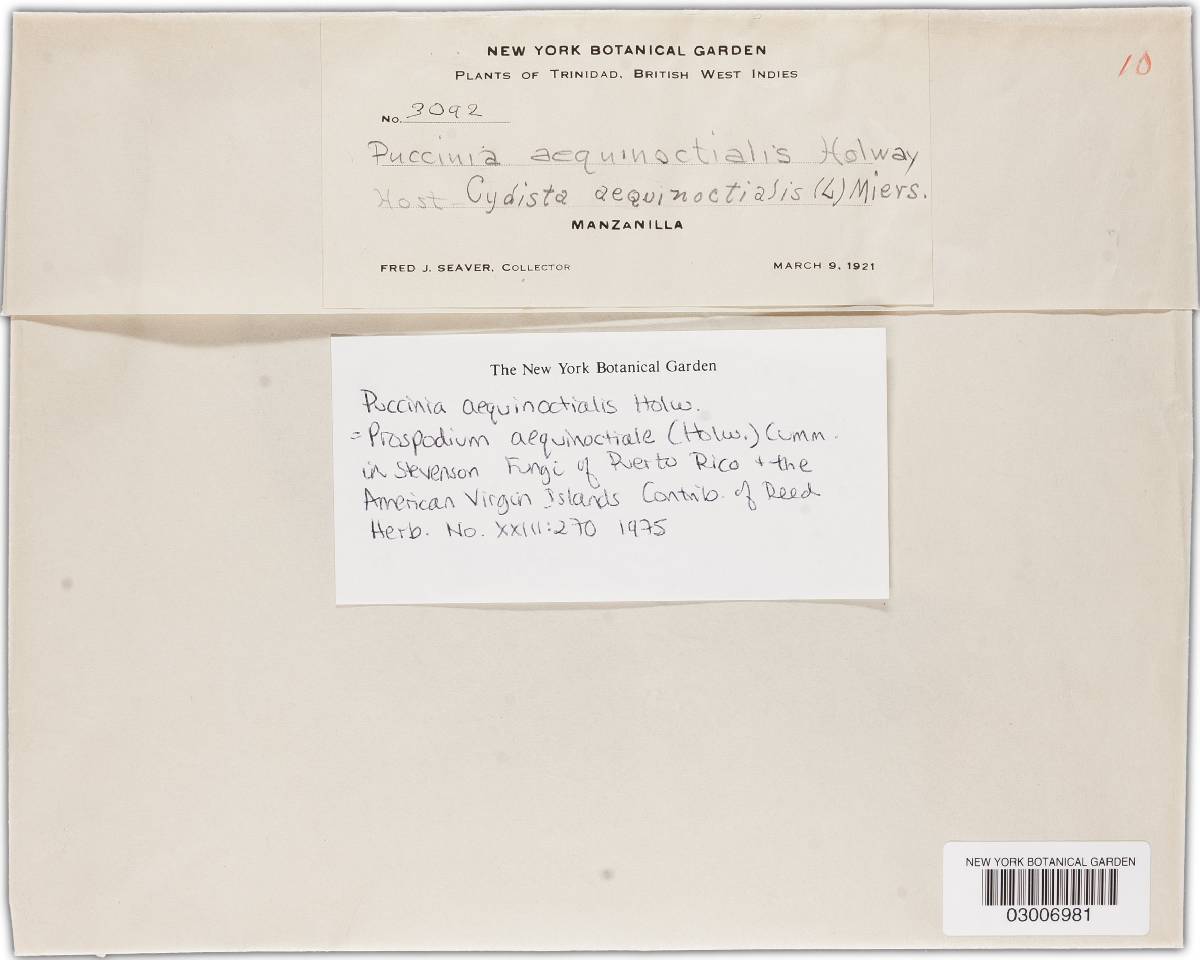 NEW YORK BOTANICAL GARDEN
PLANTS OF TRINIDAD, BRITISH WEST INDIES
10
No. 3092
Puccinia aequinoctialis Holway
Host - Cydista aequinoctialis (L) Miers.
MANZANILLA
FRED J. SEAVER, COLLECTOR MARCH 9, 1921
The New York Botanical Garden
Puccinia aequinoctialis Holw.
= Prospodium aequinoctiale (Holw.) Cumm.
in Stevenson Fungi of Puerto Rico + the
American Virgin Islands Contrib. of Reed
Herb. No. XXIII:270 1975
NEW YORK BOTANICAL GARDEN
03006981